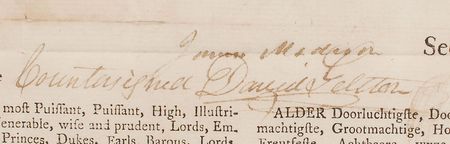 James Madison Sec
Countersigned David Gelston
most Puiſſant, Puiſſant, High, Illuſtri-
enerable, wiſe and prudent, Lords, Em-
Princes, Dukes, Earls, Barons, Lords,
ALDER Doorluchtigſte, Doo
machtigſte, Grootmachtige, Ho